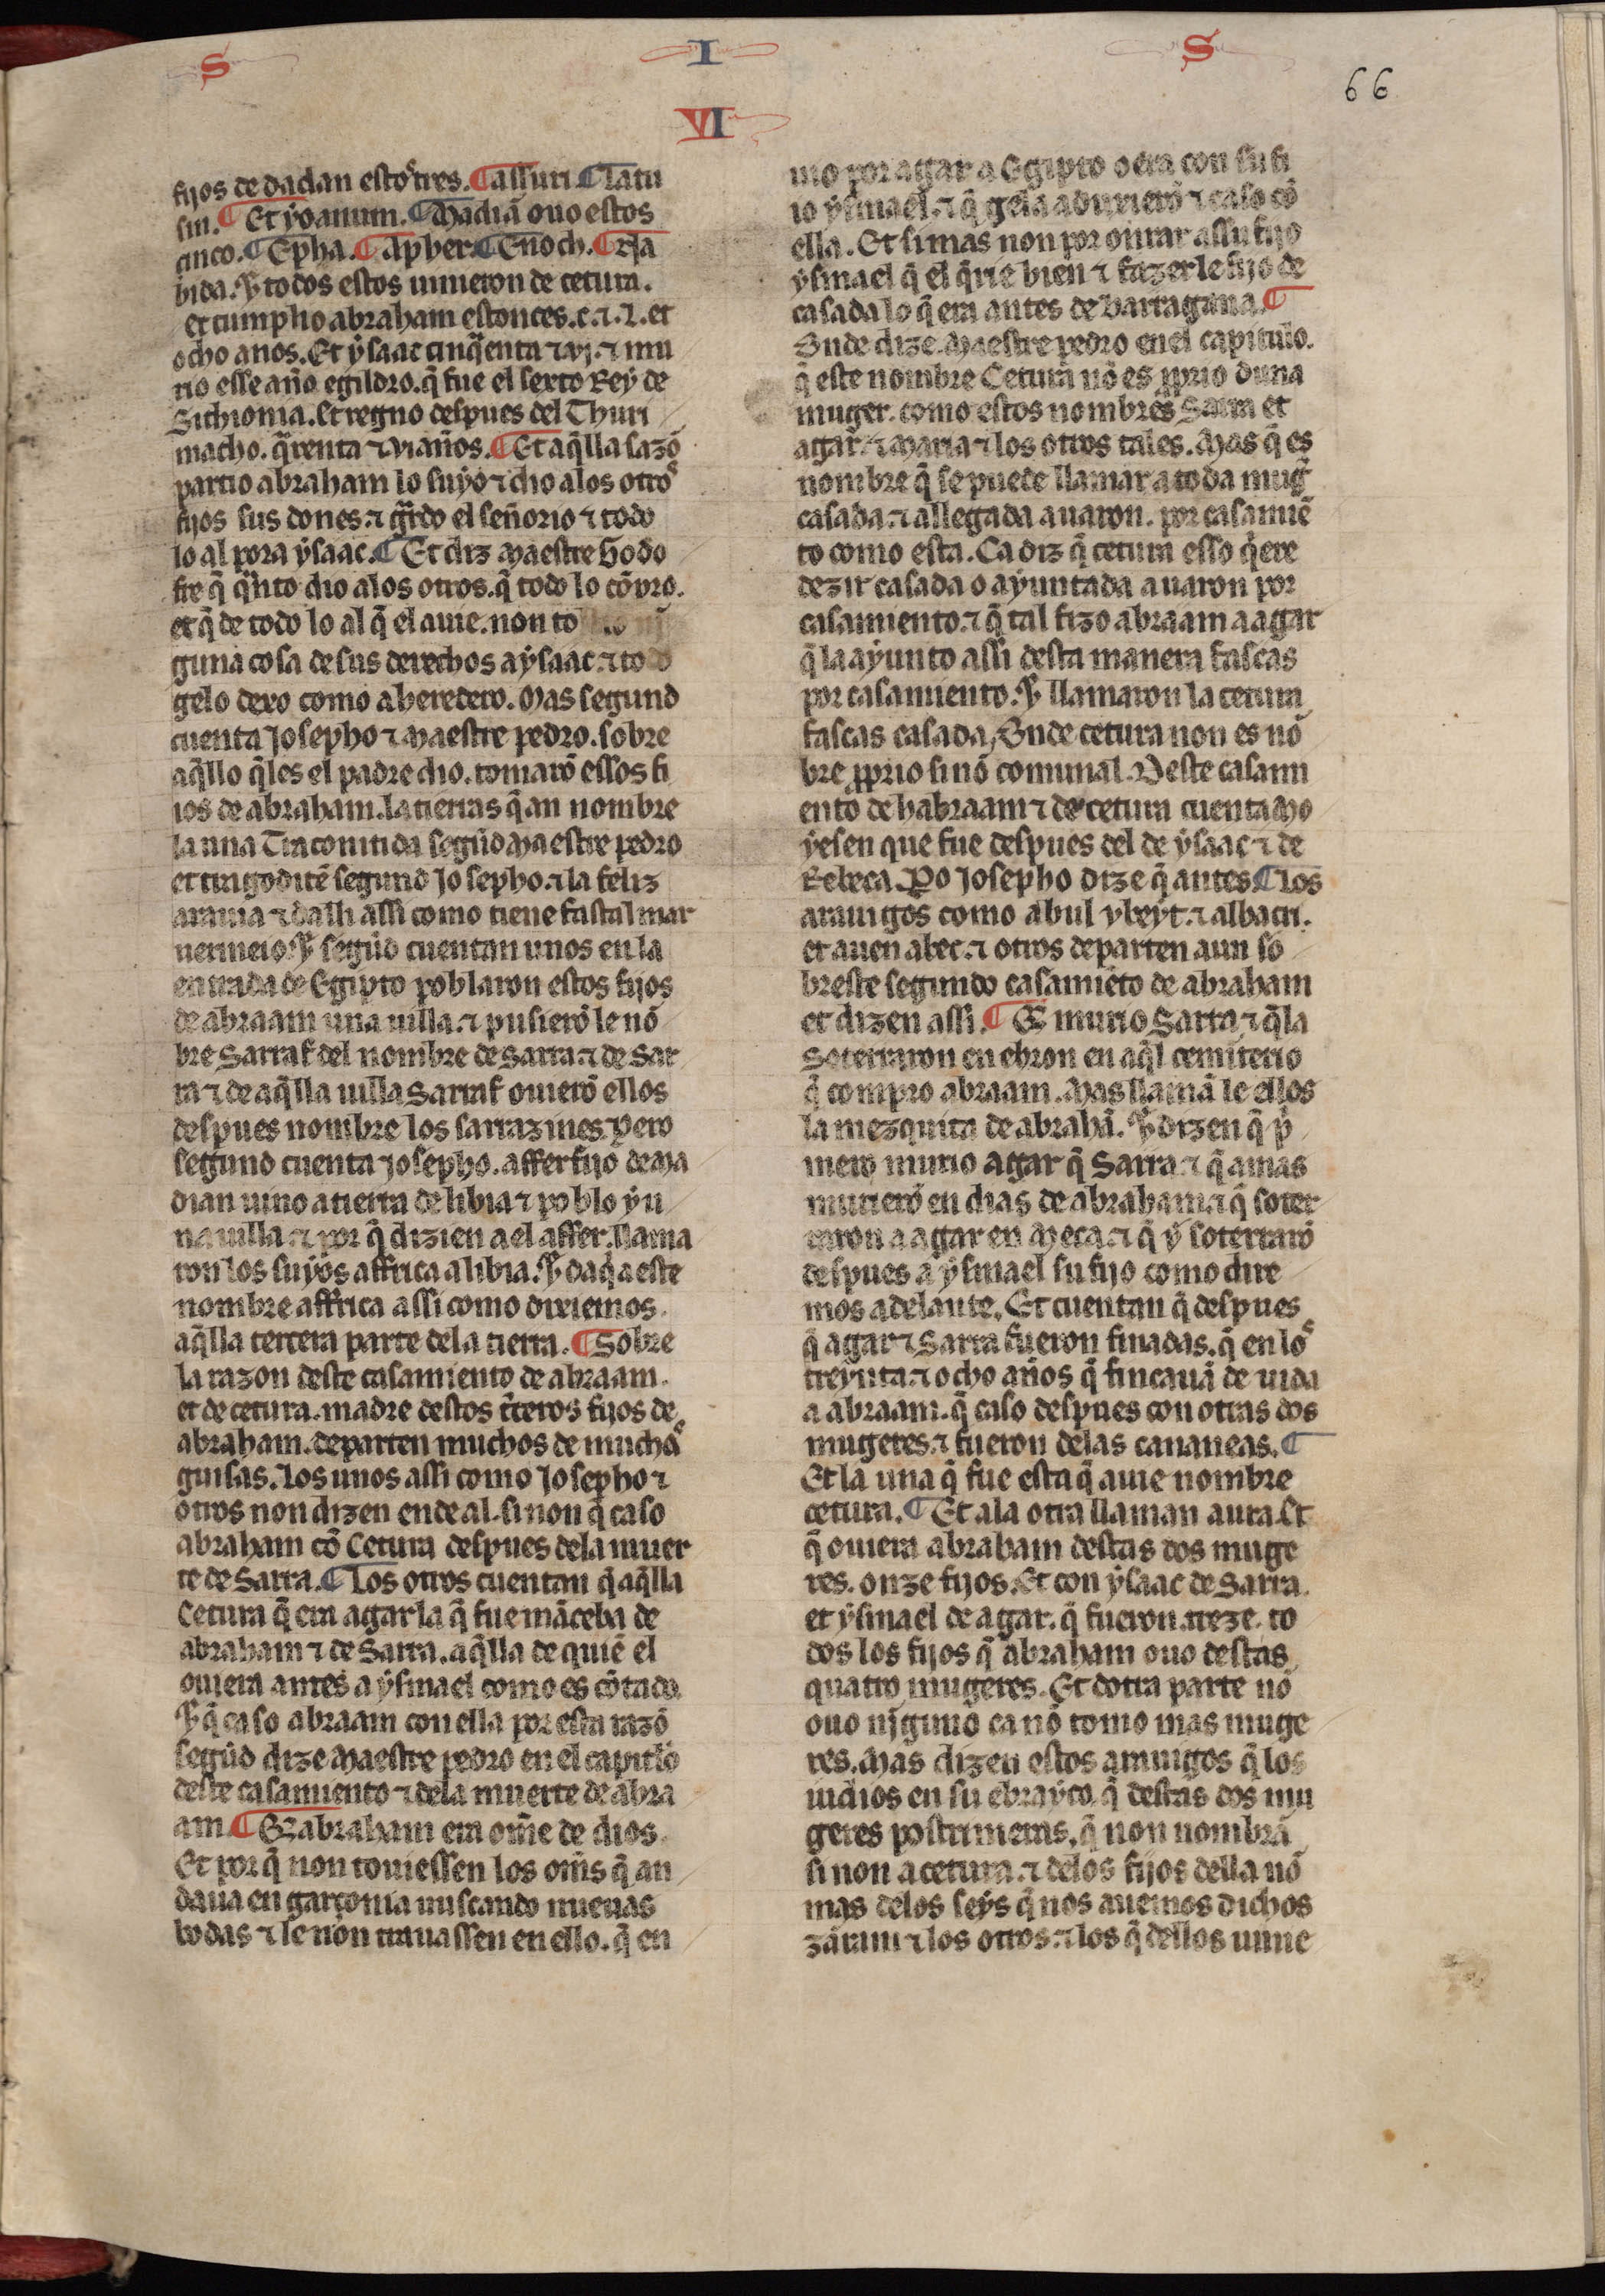 S I S
66
VI
fijos de dadan esto^s tres. ¶ assuri ¶ latu
sin. ¶ Et yoanum. ¶ Madiã ouo estos
cinco. ¶ Epha. ¶ Apher. ¶ Enoch. ¶ Ela
bida. Y todos estos uinieron de cetura.
et cumplio abraham estonces. c. ⁊. l. et
ocho anos. Et ẏsaac cinq̃enta ⁊ vj. ⁊ mu
rio esse año egildro. q̃ fue el sexto Rey de
Sichionia. Et regno despues del Thuri
macho. q̃renta ⁊ vi años. ¶ Et aq̃lla sazõ
partio abraham lo suyo ⁊ dio alos otro^s
fijos sus dones. ⁊ g̃rdo el señorio ⁊ todo
lo al pora ẏsaac. ¶ Et diz Maestre Godo
fre q̃ q̃nto dio alos otros. q̃ todo lo cõpro.
et q̃ de todo lo al q̃ el auie. non to
guna cosa de sus derechos a ẏsaac. ⁊ to d
gelo dexo como a heredero. Mas segund
cuenta Josepho ⁊ Maestre pedro. sobre
aq̃llo q̃les el padre dio. tomarõ essos fi
ios de abraham. la tierras q̃ an nombre
la una Traconitida segũd Maestre pedro
et trogoditẽ segund Josepho. ⁊ la feliz
arauia ⁊ dalli assi como tiene fastal mar
uermeio. Y segũd cuentan unos en la
entrada de Egipto poblaron estos fijos
de abraam una uilla. ⁊ pusierõ le nõ
bre Sarraf del nombre de Sarra. ⁊ de Sar
ra ⁊ de aq̃lla uilla Sarraf ouierõ ellos
despues nombre los sarrazines. Pero
segund cuenta Josepho. affer fijo de Ma
dian uino a tierra de libia ⁊ poblo ẏ u
na uilla. ⁊ por q̃ dizien a el affer. llama
ron los suyos affrica a libia. Y daq̃ a este
nombre affrica assi como dixiemos
aq̃lla tercera parte dela tierra. ¶ Sobre
la razon deste casamiento de abraam.
et de cetura. madre destos t̃ceros fijos de
abraham. departen muchos de mucha^s
guisas. Los unos assi como Josepho ⁊
otros non dizen ende al. si non q̃ caso
abraham cõ Cetura despues dela muer
te de Sarra. ¶ Los otros cuentan q̃ aq̃lla
Cetura q̃ era agar la q̃ fue mãceba de
abraham ⁊ de Sarra. aq̃lla de quiẽ el
ouiera antes a ẏsmael como es cõtado.
Y q̃ caso abraam con ella por esta razõ
segũd dize Maestre pedro en el capitlo
deste casamiento ⁊ dela muerte de abra
am. ¶ Et abraham era om̃e de dios.
Et por q̃ non touiessen los om̃s q̃ an
daua en garçonia buscando nueuas
bodas ⁊ le non trauassen en ello. q̃ en
uio por agar a Egipto o era con su fi
io ẏsmael. ⁊ q̃ gela aduxierõ ⁊ caso cõ
ella. Et si mas non por onrar assu fijo
ẏsmael q̃ el q̃rie bien ⁊ fazer le fijo de
casada lo q̃ era antes de barragana. ¶
Onde dize Maestre pedro en el capitulo.
q̃ este nombre Cetura nõ es p̃prio duna
muger. como estos nombres Sarra et
agar. ⁊ Maria ⁊ los otros tales. Mas q̃ es
nombre q̃ se puede llamar a toda mug̃
casada. ⁊ allegada a uaron. por casamiẽ
to como esta. Ca diz q̃ cetura esso q̃ere
dezir casada o ayuntada a uaron por
casamiento. ⁊ q̃ tal fizo abraam a agar
q̃ la ayunto assi desta manera fascas
por casamiento. Y llamaron la cetura
fascas casada, Onde cetura non es nõ
bre p̃prio si nõ comunal. Deste casami
ento de habraam ⁊ de cetura cuenta Mo
ysen que fue despues del de ẏsaac ⁊ de
Rebeca. P̃o Josepho dize q̃ antes. ¶ Los
arauigos como abul ybeyt. ⁊ albacri.
et auen abec. ⁊ otros departen aun so
breste segundo casamiẽto de abraham
et dizen assi. ¶ Q̃ murio Sarra. ⁊ q̃la
soterraron en ebron en aq̃l cemiterio
q̃ compro abraam. Mas llamã le ellos
la mezquita de abrahã. Y dizen q̃ p̃
mero murio agar q̃ Sarra. ⁊ q̃ amas
murierõ en dias de abraham. ⁊ q̃ soter
raron a agar en Meca. ⁊ q̃ ẏ soterrarõ
despues a ẏsmael su fijo como dire
mos adelante. Et cuentan q̃ despues
q̃ agar ⁊ Sarra fueron finadas. q̃ en lo^s
treynta ⁊ ocho años q̃ fincauã de uida
a abraam. q̃ caso despues con otras dos
mugeres. ⁊ fueron delas cananeas. ¶
Et la una q̃ fue esta q̃ auie nombre
cetura. ¶ Et ala otra llaman aura. Et
q̃ ouiera abraham destas dos muge
res. onze fijos. Et con ẏsaac de Sarra.
et ẏsmael de agar. q̃ fueron treze. to
dos los fijos q̃ abraham ouo destas
quatro mugeres. Et dotra parte nõ
ouo nĩguno ca nõ tomo mas muge
res. Mas dizen estos arauigos q̃ los
iudios en su ebrayco. q̃ destas dos mu
geres postrimeras. q̃ non nombrã
si non a cetura. ⁊ delos fijos della nõ
mas delos seys q̃ nos auemos dichos
zãram ⁊ los otros. ⁊ los q̃ dellos uinie